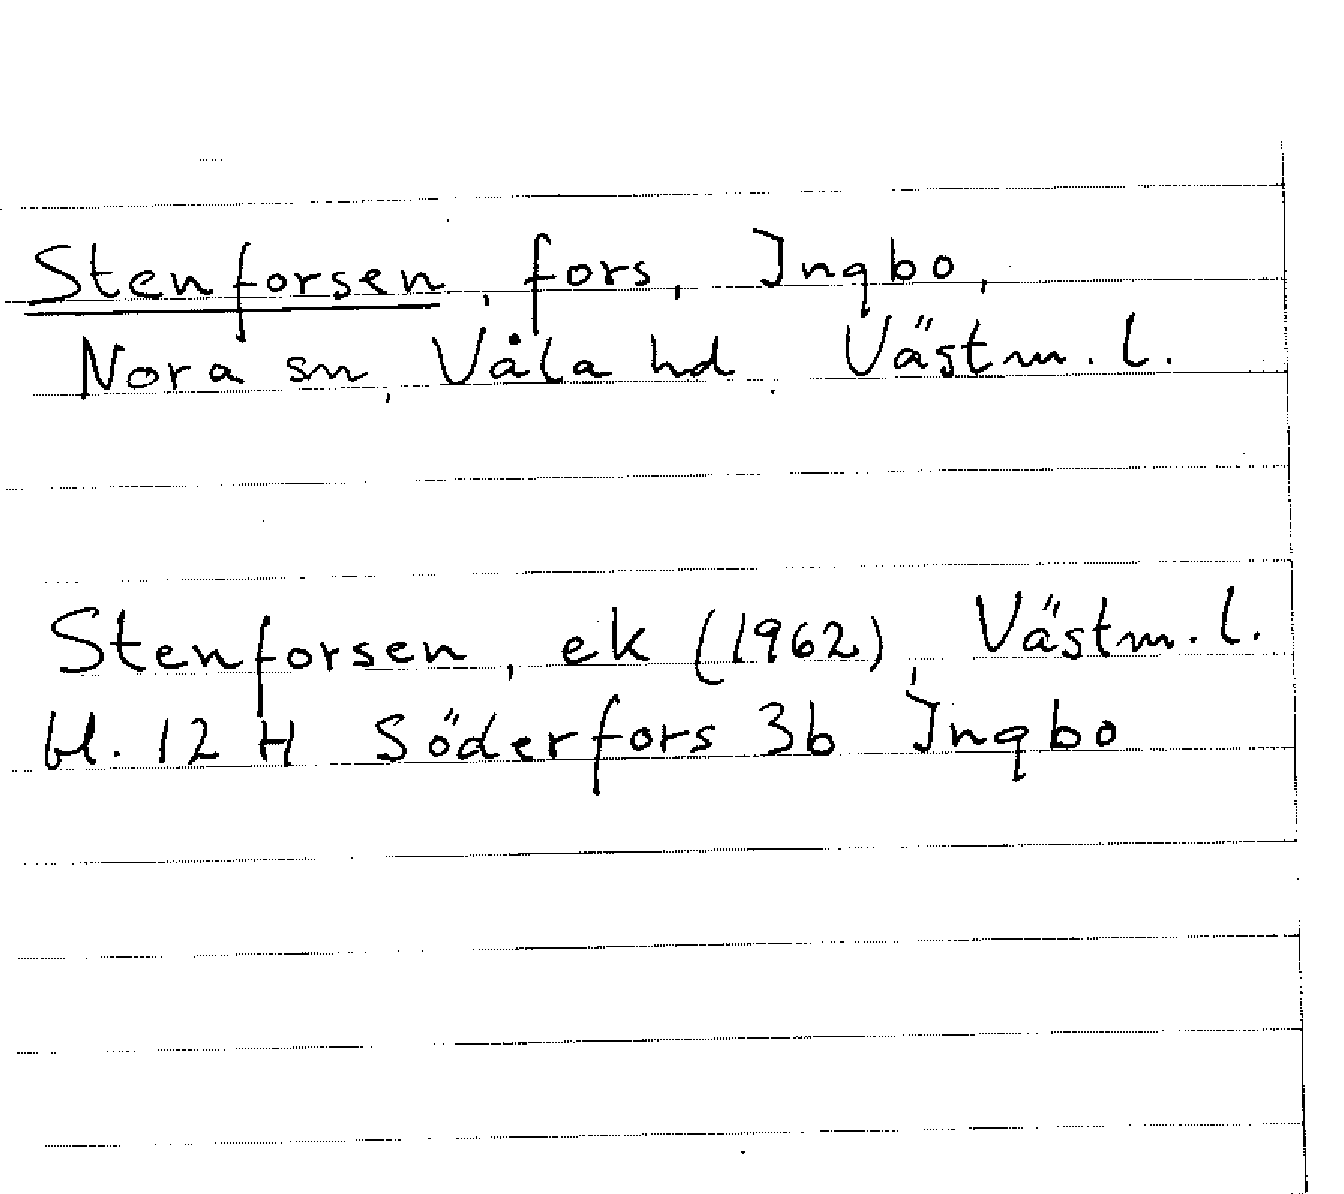 Stenforsen, fors, Ingbo,
Nora sn, Våla hd Västm. l.
Stenforsen, ek (1962), Västm. l.
bl. 12 H Söderfors 3b Ingbo